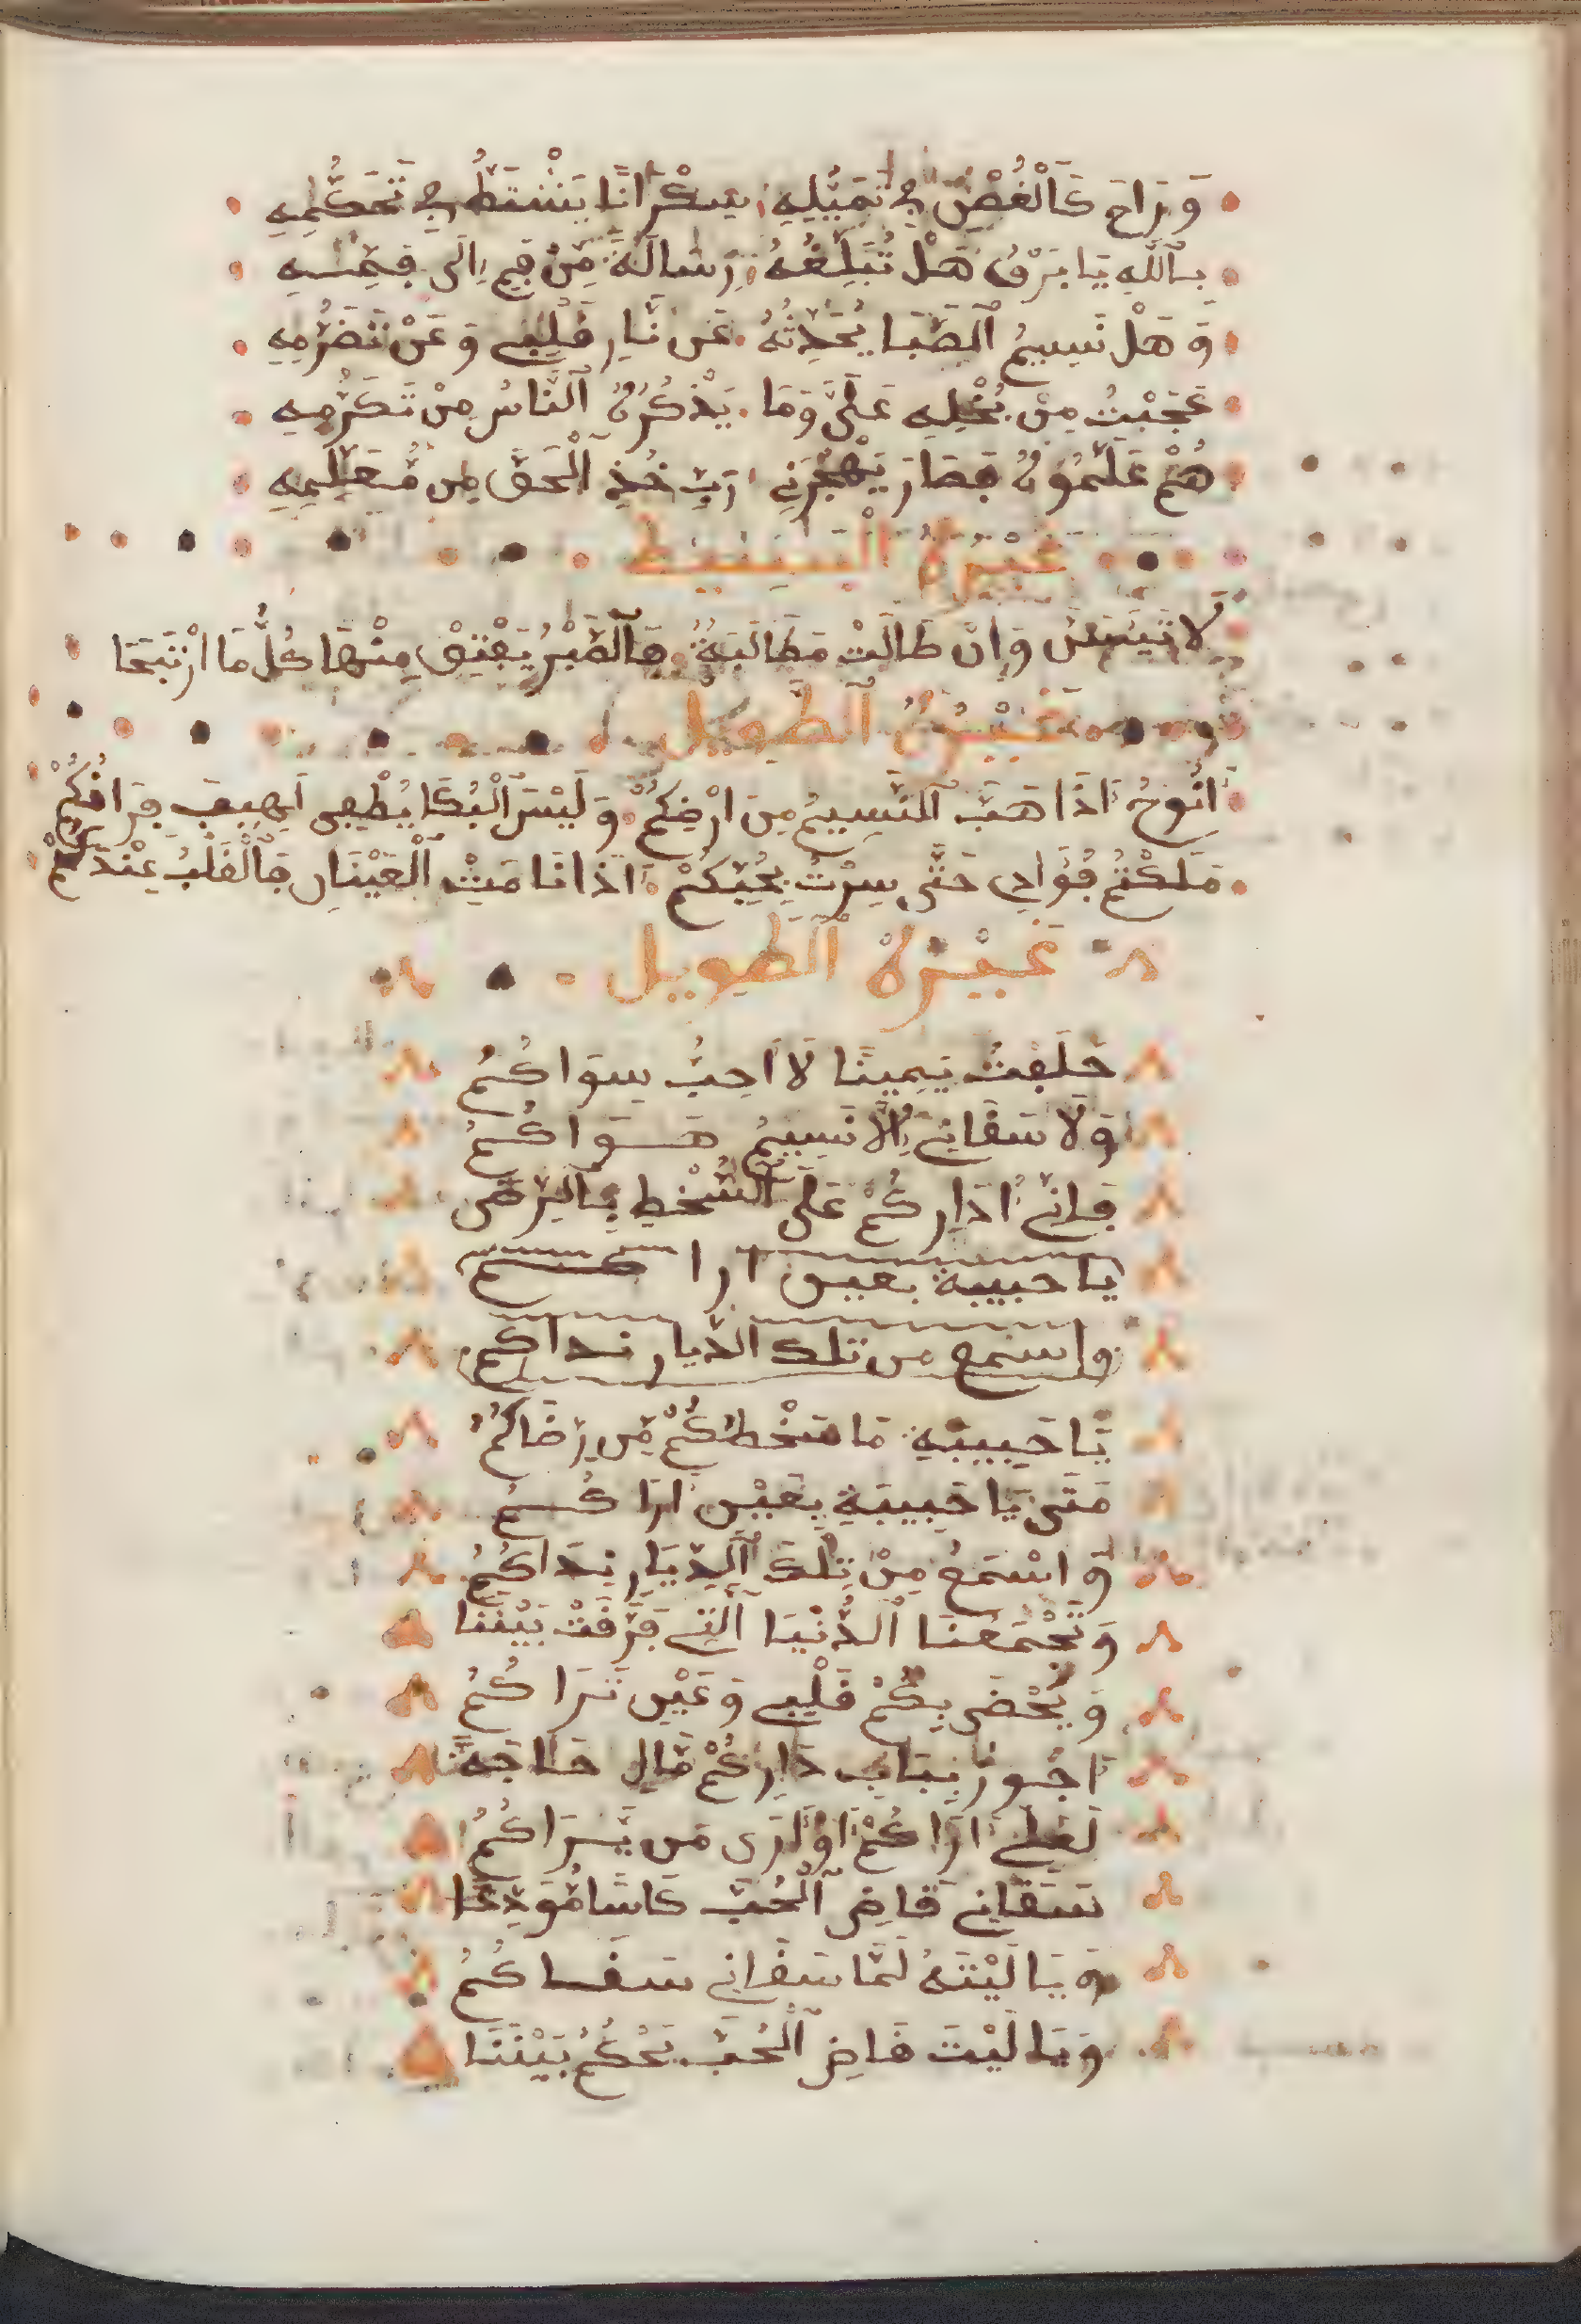 وَرَاحَ كَالْغُصْنِ فِي تَمَيُّلِهِ سَكْرَانًا يَشْتَطُّ فِي تَحَكُّمِهِ
بِاللَّهِ يَا بَرْقُ هَلْ تُبَلِّغُهُ رِسَالَةً مِنْ فَمِي إِلَى فَمِهِ
وَهَلْ نَسِيمُ الصَّبَا يُحَدِّثُهُ عَنْ نَارِ قَلْبِي وَعَنْ تَضَرُّمِهِ
عَجِبْتُ مِنْ بُخْلِهِ عَلَيَّ وَمَا يَذْكُرُهُ النَّاسُ مِنْ تَكَرُّمِهِ
هُمْ عَلَّمُوهُ فَصَارَ يَهْجُرُنِي رَبِّ خُذِ الْحَقَّ مِنْ مُعَلِّمِهِ
غَيْرُهُ الْبَسِيطُ
لَا تَيْئَسَنَّ وَإِنْ طَالَتْ مَطَالَبَةٌ فَالصَّبْرُ يَفْتِقُ مِنْهَا كُلَّ مَا ارْتَتَجَا
غَيْرُهُ الطَّوِيلُ
أَنُوحُ إِذَا هَبَّ النَّسِيمُ مِنَ ارْضِكُمْ وَلَيْسَ الْبُكَا يُطْفِي لَهِيبَ فِرَاقِكُمْ
مَلَكْتُمْ فُؤَادِي حَتَّى سِرْتُ بِحُبِّكُمْ إِذَا نَامَتِ الْعَيْنَانِ فَالْقَلْبُ عِنْدَكُمْ
غَيْرُهُ الطَّوِيلُ
حَلَفْتُ يَمِينًا لَا أُحِبُّ سِوَاكُمُ
وَلَا شَفَانِي إِلَّا نَسِيمُ هَوَاكُمُ
فَإِنِّي أُدَارِكُمْ عَلَى السُّخْطِ بِالرِّضَى
يا حبيبة بعين اراكم
واسمع من تلك الديار نداكم
يَا حَبِيبَةِ مَا سَخْطُكُمْ مِن رِضَاكُمُ
مَتَى يَا حَبِيبَةِ بِعَيْنِ أَرَاكُمُ
وَاسْمَعُ مِنْ تِلْكَ الدِّيَارِ نِدَاكُمُ
وَتَجْمَعُنَا الدُّنْيَا الَّتِي فَرَّقَتْ بَيْنَنَا
وَيَحْضَى بِكُمْ قَلْبِي وَعَيْنِ تَرَاكُمُ
أَجُوزُ بِبَابِ دَارِكُمْ مَالِ حَاجَةً
لَعَلِّي أَرَاكُمْ أَوْ أَرَى مَن يَّرَاكُمُ
سَقَانِي قَاضِ الْحُبِّ كَاسًا مُوَدِّعًا
وَيَا لَيْتَهُ لَمَّا سَقَانِي سَقَاكُمُ
وَيَا لَيْتَ قَاضِ الْحُبِّ يَحْكُمُ بَيْنَنَا